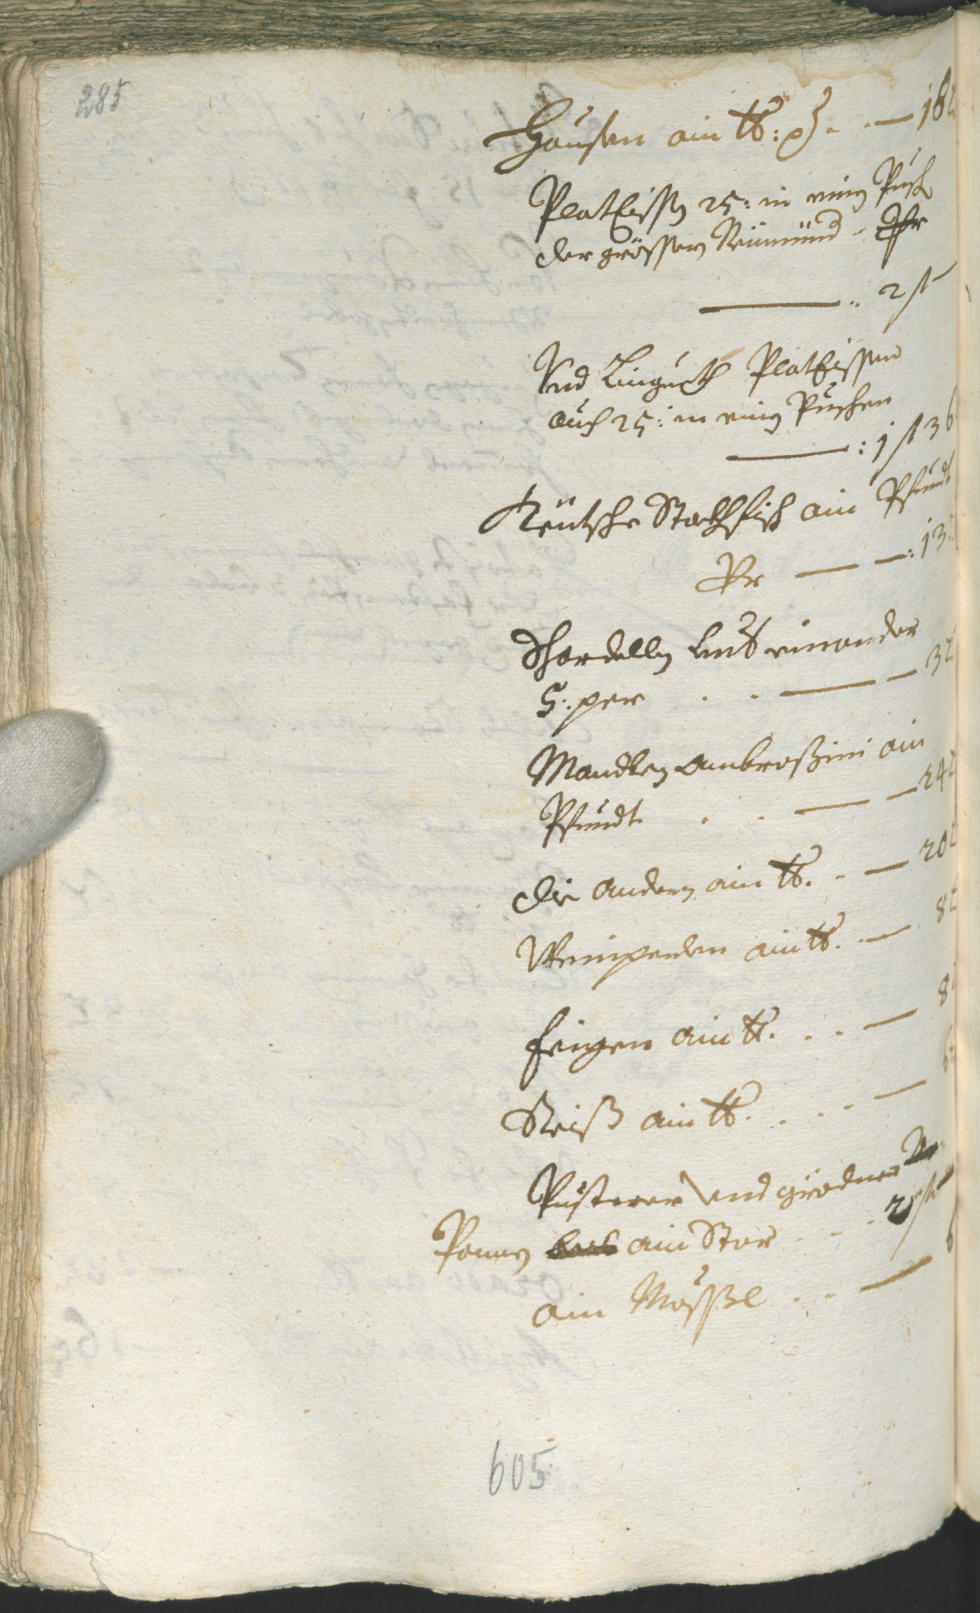 285
Hausen ain ℔: p. — 18
Plateissen 25: in ainen Pusch
der grössern Niumünd - Per
— .. 2 fl
Und Linguetl Plateissen
auch 25: in ainen Puschen
— : 1 fl 36
Teütsche Stockhfisch ain Pfundt
Per — — : 13
Schardellen Aus einander
5: per . . — — 32
Mandlen Ambrosini ain
Pfundt . . — — 24
die Andern ain ℔. - — 20
Weinperlen ain ℔. — 8
Feigen ain ℔. . . — 8
Reiß ain ℔. . . . — 6
Pusterer und grödner
Ponen ain Star . . . 2 fl
ain Mässl . . — 6
605